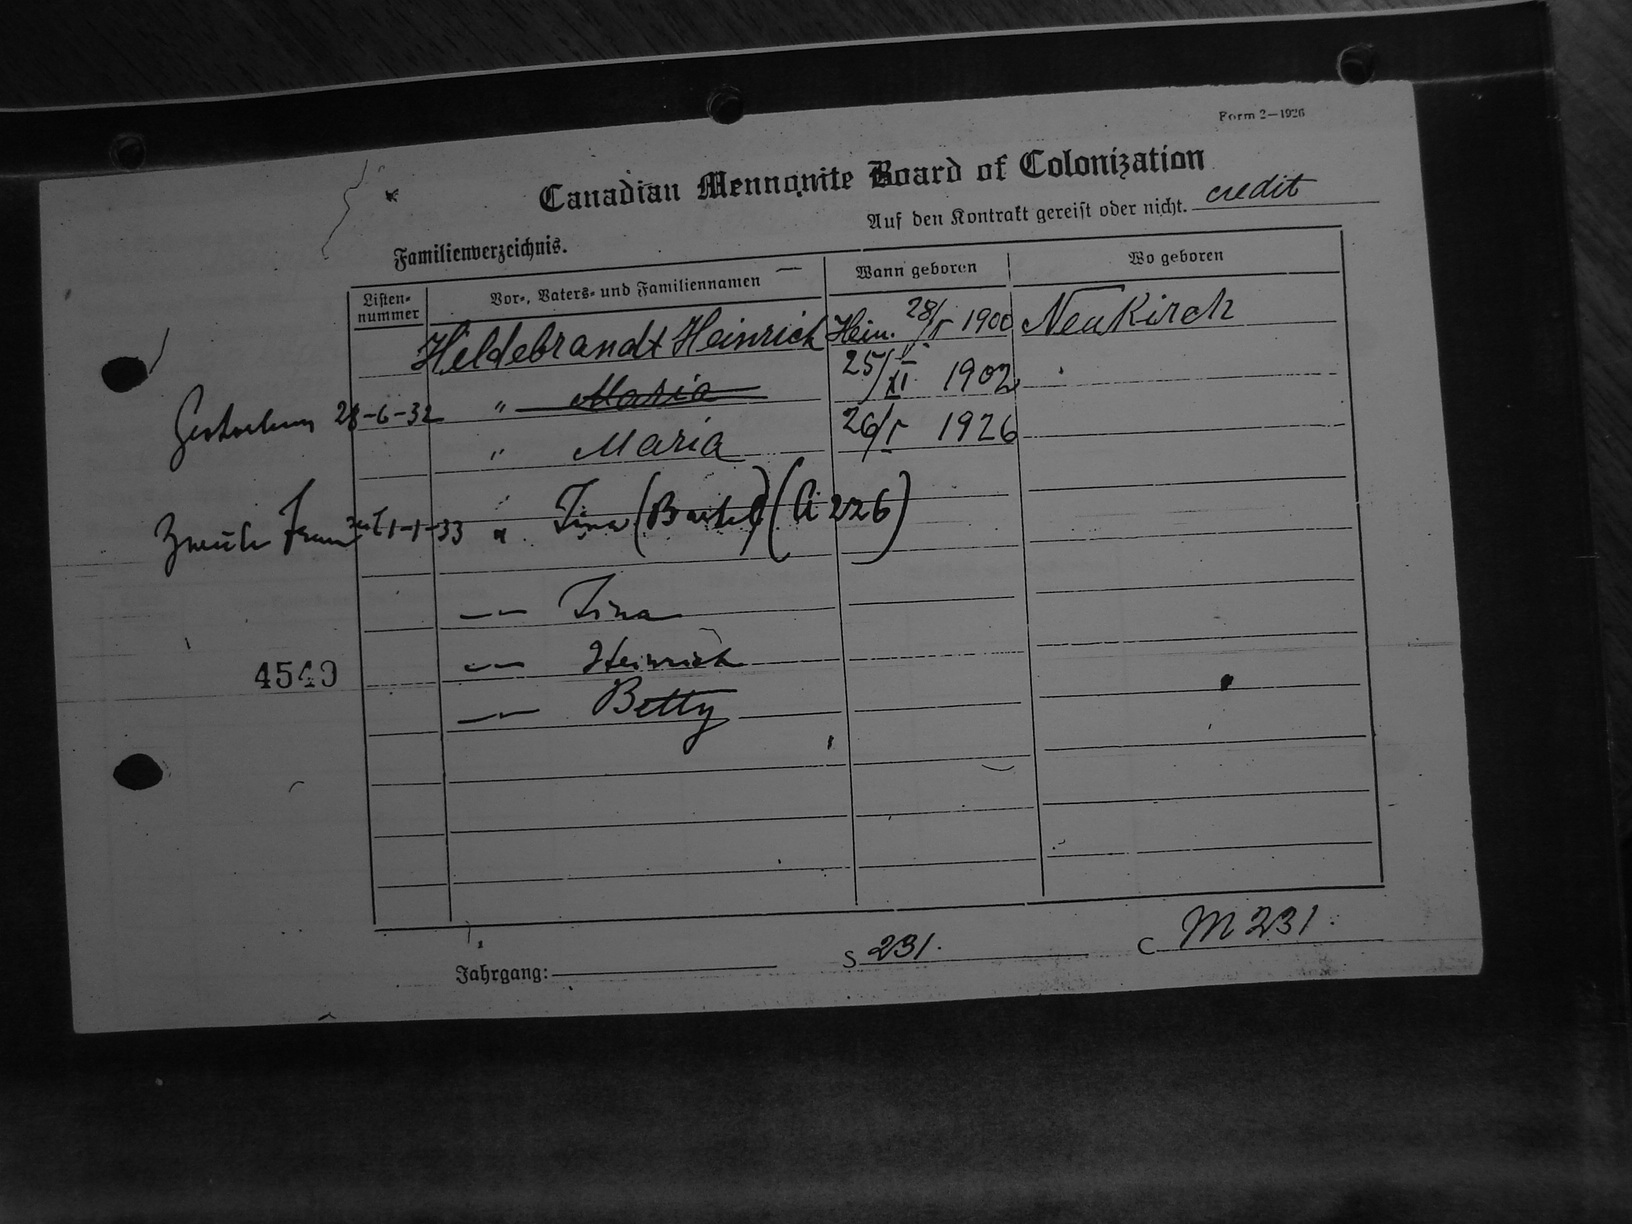 Form 2—1926
Canadian Mennonite Board of Colonization
Auf den Kontrakt gereist oder nicht. credit
Familienverzeichnis.
Listen-nummer Vor-, Vaters- und Familiennamen Wann geboren Wo geboren
Hildebrandt Heinrich Hein. 28/V 1900 NeuKirch
Gestorben 28-6-32 " Maria 25/XI 1902
" Maria 26/V 1926
Zweite Frau seit 1-1-33 " Tina (Bartel) (A 226)
—— Tina
4549 —— Heinrich
—— Betty
Jahrgang: S 231. C M 231.